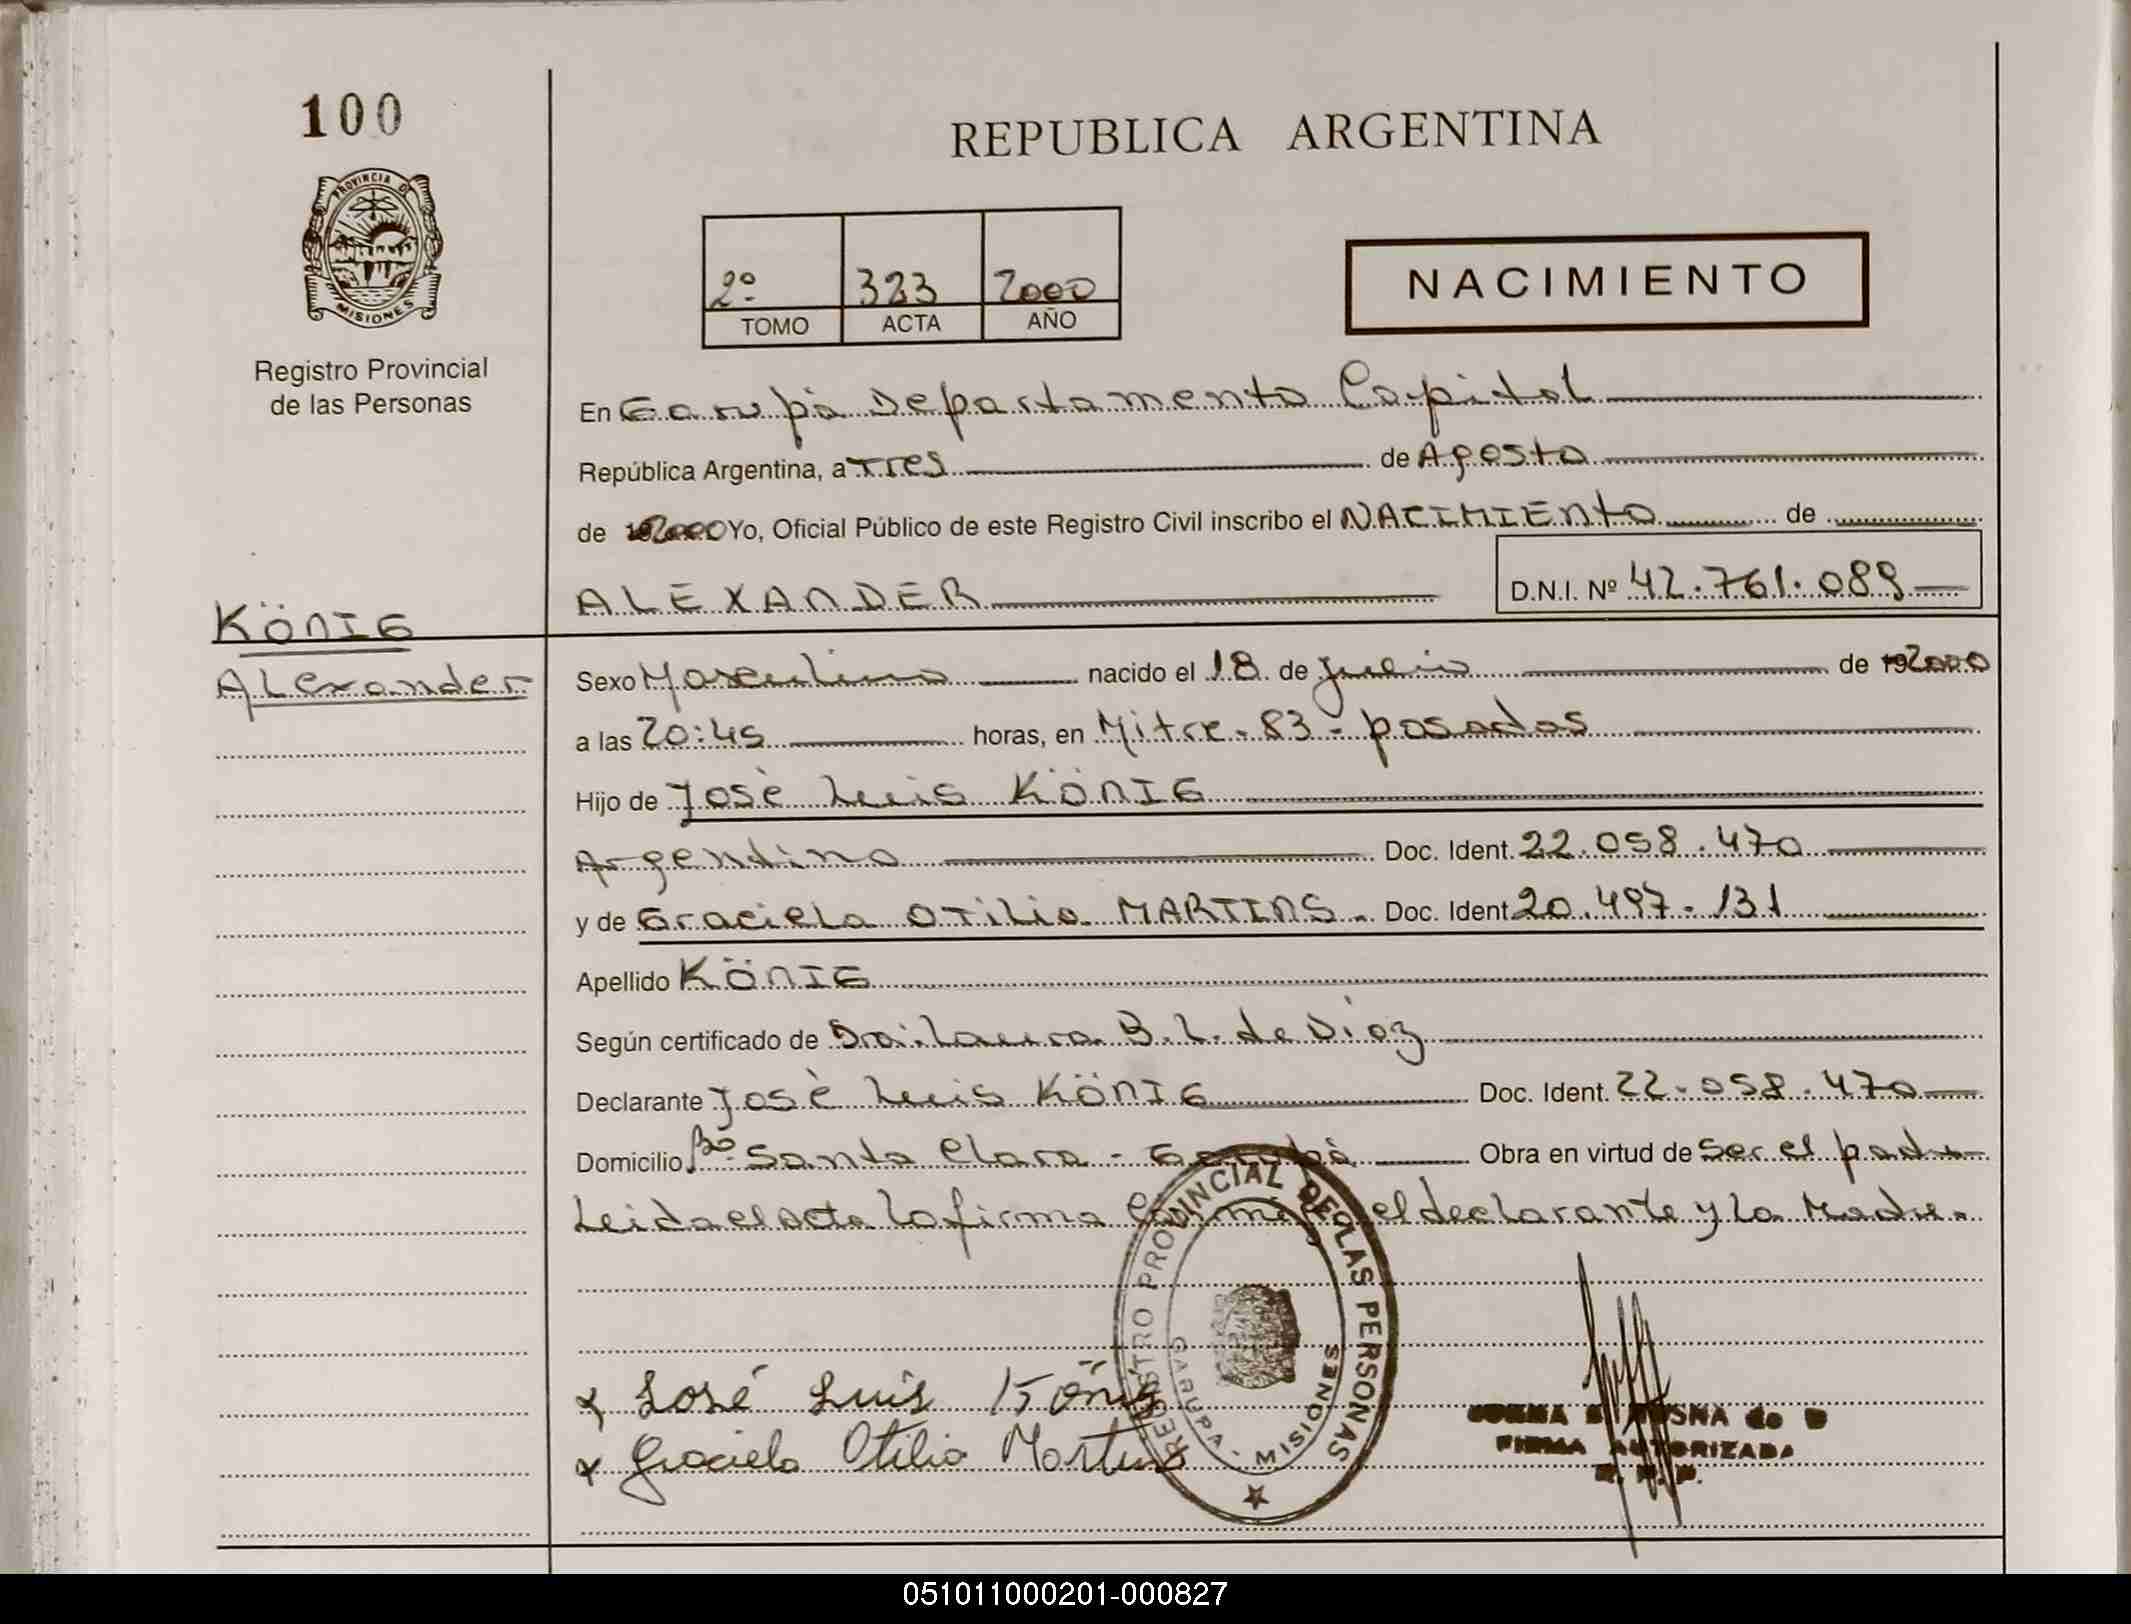 100
REPUBLICA ARGENTINA
PROVINCIA DE
MISIONES
Registro Provincial
de las Personas
2º 323 2000
TOMO ACTA AÑO
NACIMIENTO
En Garupà Departamento Capital
República Argentina, a Tres de Agosto
de 2000 Yo, Oficial Público de este Registro Civil inscribo el NACIMIENto de
ALEXANDER D.N.I. Nº 42.761.089
KÖNIG
Alexander
Sexo Masculino nacido el 18 de Julio de 192000
a las 20:45 horas, en Mitre - 83 - posadas
Hijo de Josè Luis KÖNIG
Argentino Doc. Ident. 22.058.470
y de Graciela Otilia MARTINS - Doc. Ident. 20.497.131
Apellido KÖNIG
Según certificado de Dra. Laura B. L. de Diaz
Declarante Josè Luis KÖNIG Doc. Ident. 22.058.470
Domicilio Bº Santa Clara - Garupà Obra en virtud de ser el padre
Leida el acta la firma el declarante y la Madre.
José Luis König
Graciela Otilia Martins
REGISTRO PROVINCIAL DE LAS PERSONAS
GARUPA - MISIONES
FIRMA AUTORIZADA
051011000201-000827